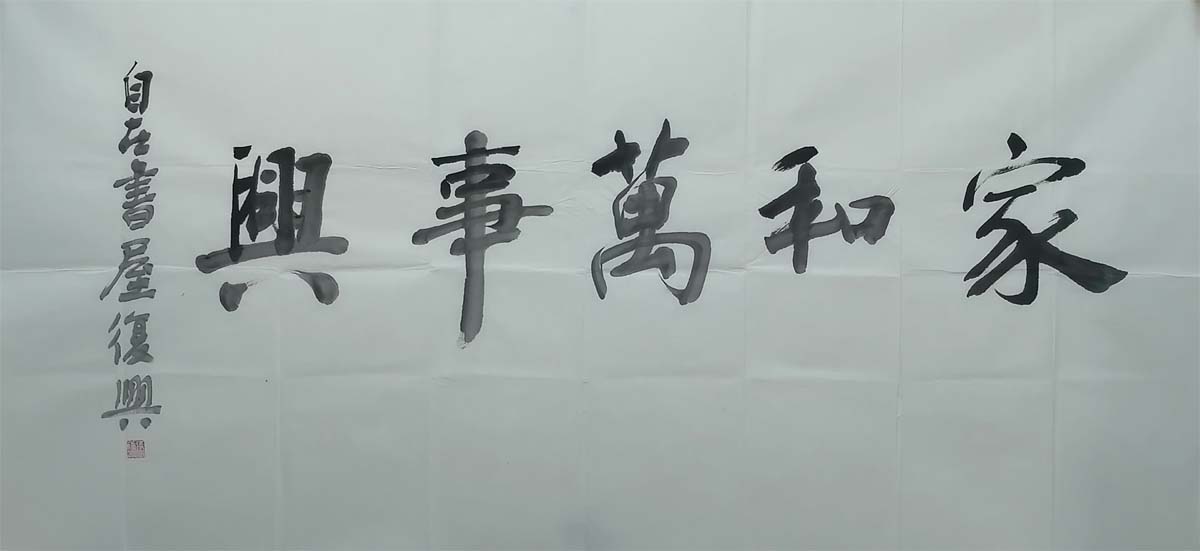 家和萬事興
自在書屋復興